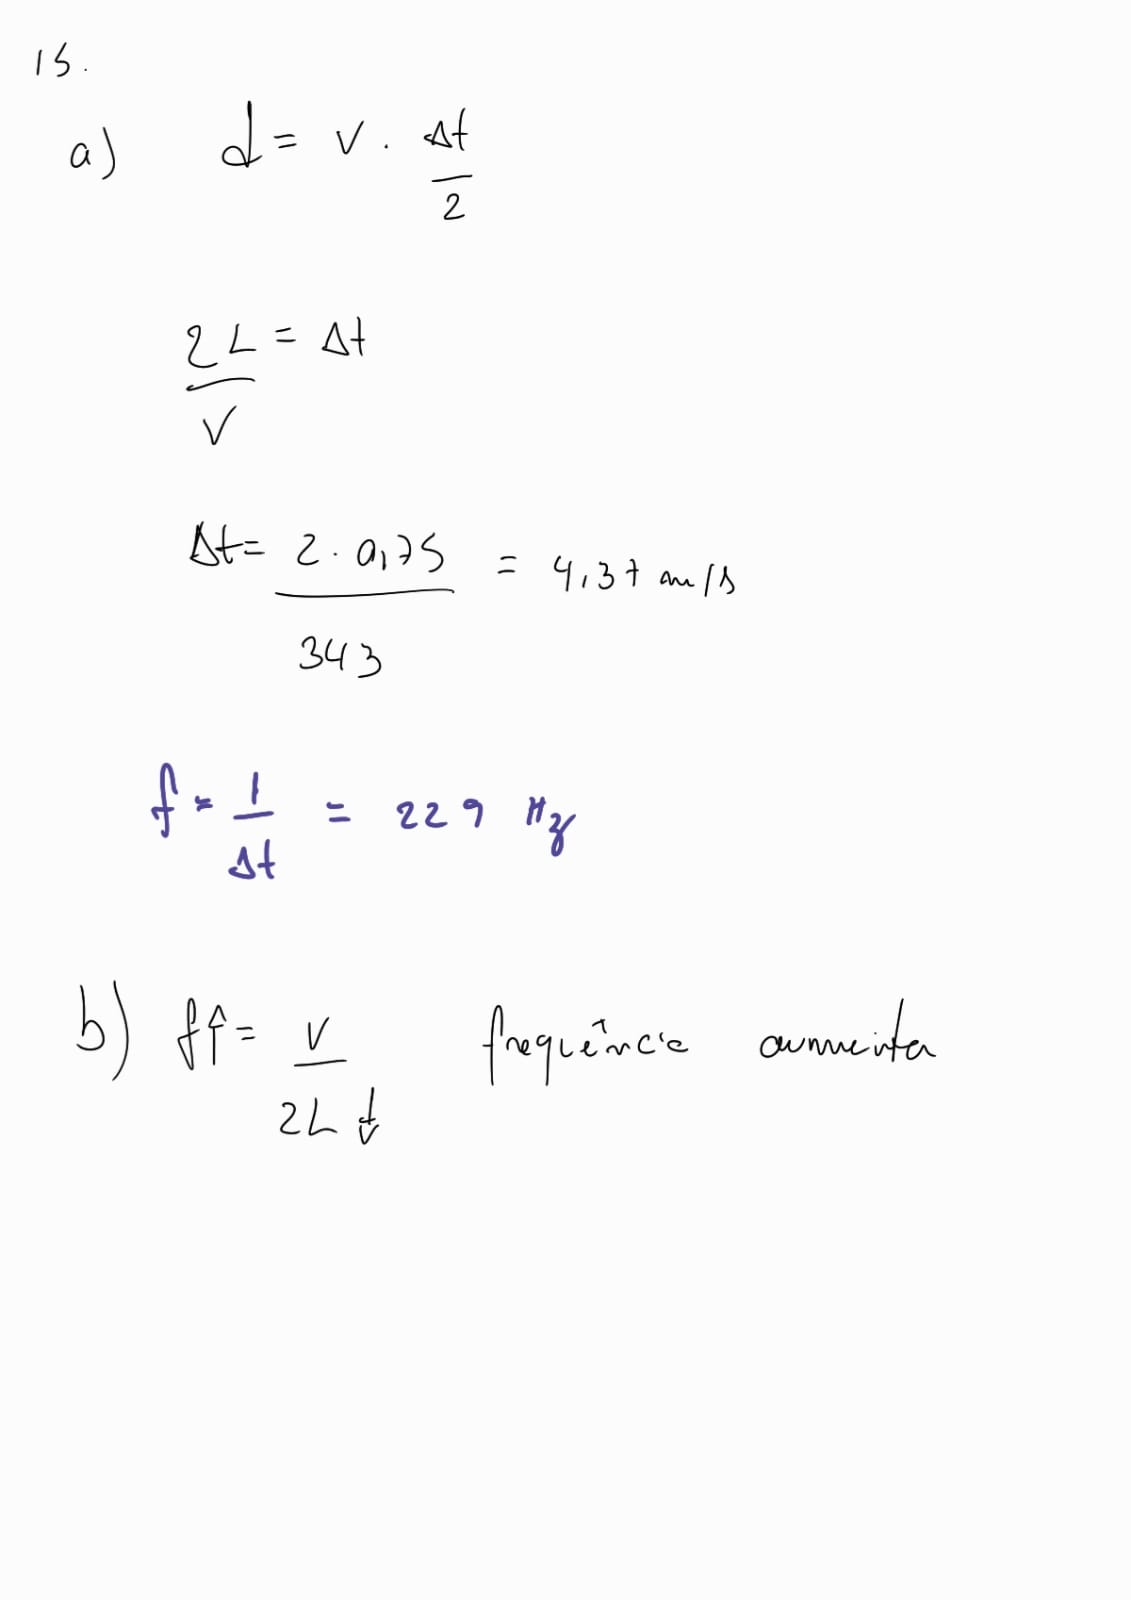 15.
a) d = v . Δt/2
2L/v = Δt
Δt = 2 . 0,75/343 = 4,37 m/s
f = 1/Δt = 229 Hz
b) f↑ = v/2L↓ frequência aumenta